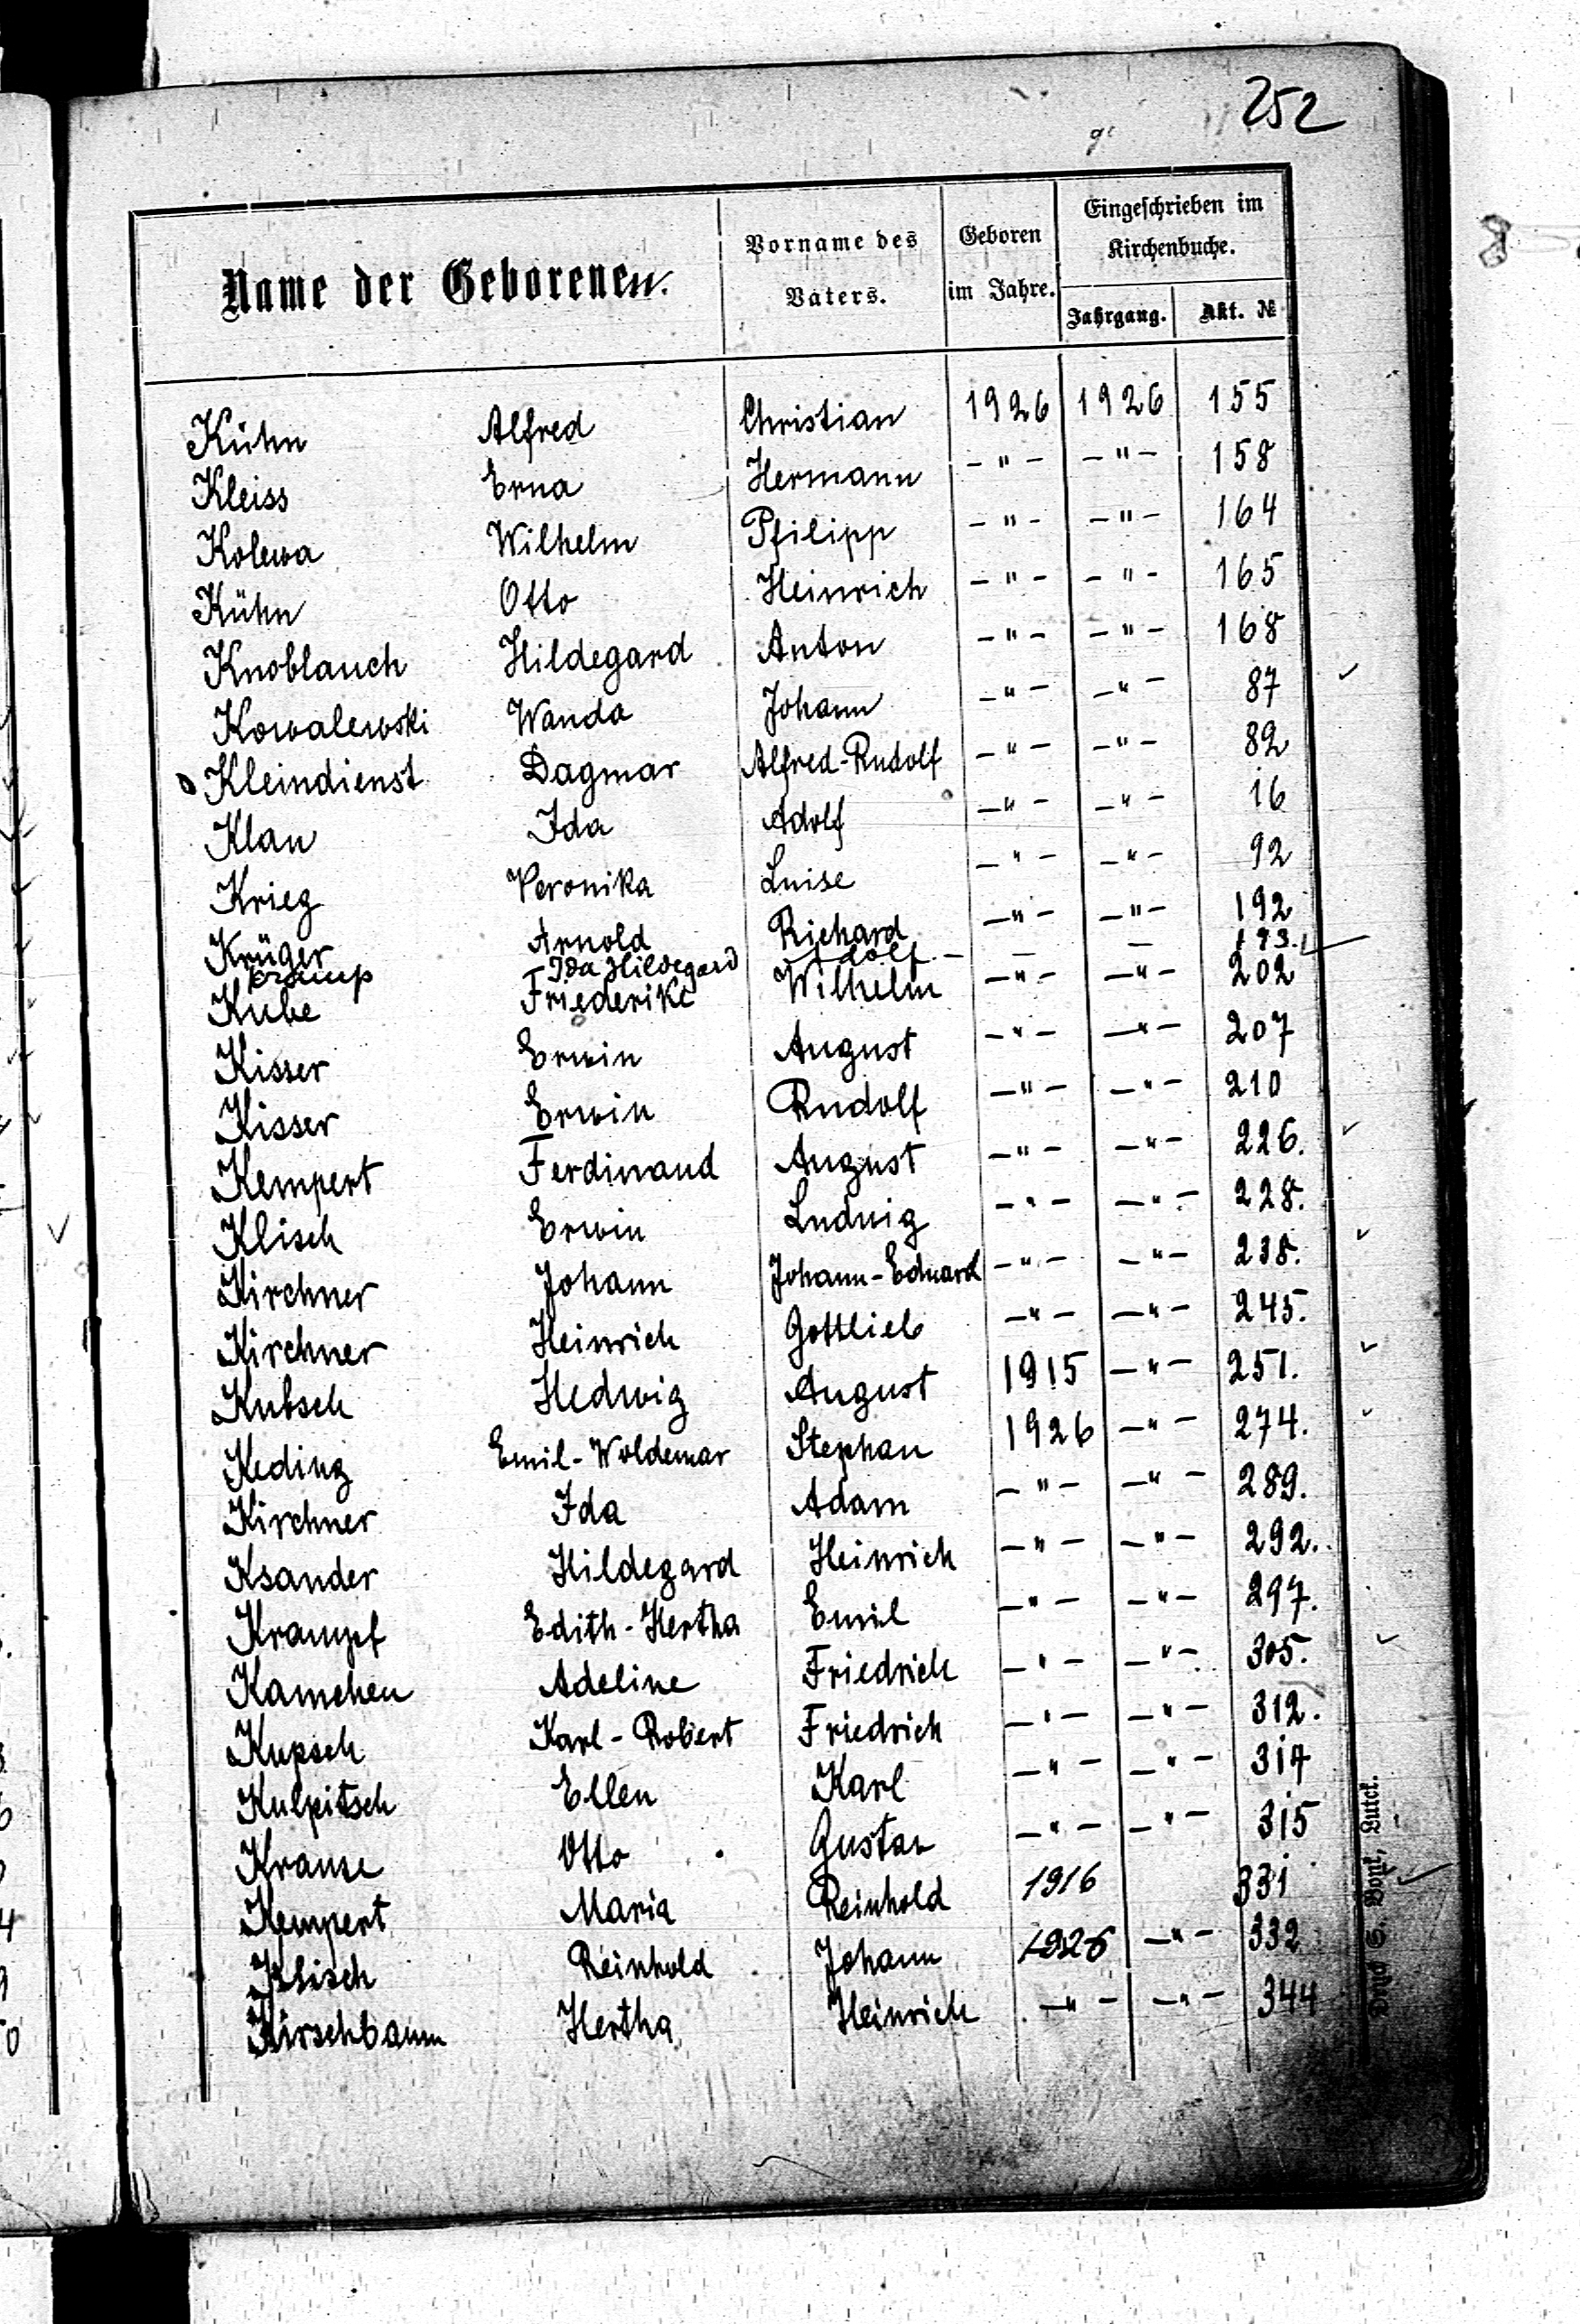 252
Name der Geborenen.
Vorname des Vaters.
Geboren im Jahre.
Eingeschrieben im Kirchenbuche.
Jahrgang.
Akt. №
Kühn Alfred Christian 1926 1926 155
Kleiss Erna Hermann -"- -"- 158
Kolewa Wilhelm Philipp -"- -"- 164
Kühn Otto Heinrich -"- -"- 165
Knoblauch Hildegard Anton -"- -"- 168
Kowalewski Wanda Johann -"- -"- 87
Kleindienst Dagmar Alfred-Rudolf -"- -"- 82
Klau Ida Adolf -"- -"- 16
Krieg Veronika Luise -"- -"- 92
Krüger Arnold Richard -"- -"- 192
Kramp Ida Hildegard Adolf - - - 193.
Kube Friederike Wilhelm -"- -"- 202
Kisser Erwin August -"- -"- 207
Kisser Erwin Rudolf -"- -"- 210
Kempert Ferdinand August -"- -"- 226.
Klisch Erwin Ludwig -"- -"- 228.
Kirchner Johann Johann-Eduard -"- -"- 238.
Kirchner Heinrich Gottlieb -"- -"- 245.
Kubsch Hedwig August 1915 -"- 251.
Keding Emil-Woldemar Stephan 1926 -"- 274.
Kirchner Ida Adam -"- -"- 289.
Ksander Hildegard Heinrich -"- -"- 292.
Krampf Edith-Hertha Emil -"- -"- 297.
Kamchen Adeline Friedrich -"- -"- 305.
Kupsch Karl-Robert Friedrich -"- -"- 312.
Kulpitsch Ellen Karl -"- -"- 314
Krause Otto Gustav -"- -"- 315
Kempert Maria Reinhold 1916 331
Klisch Reinhold Johann 1926 -"- 332
Kirschbaum Hertha Heinrich -"- -"- 344